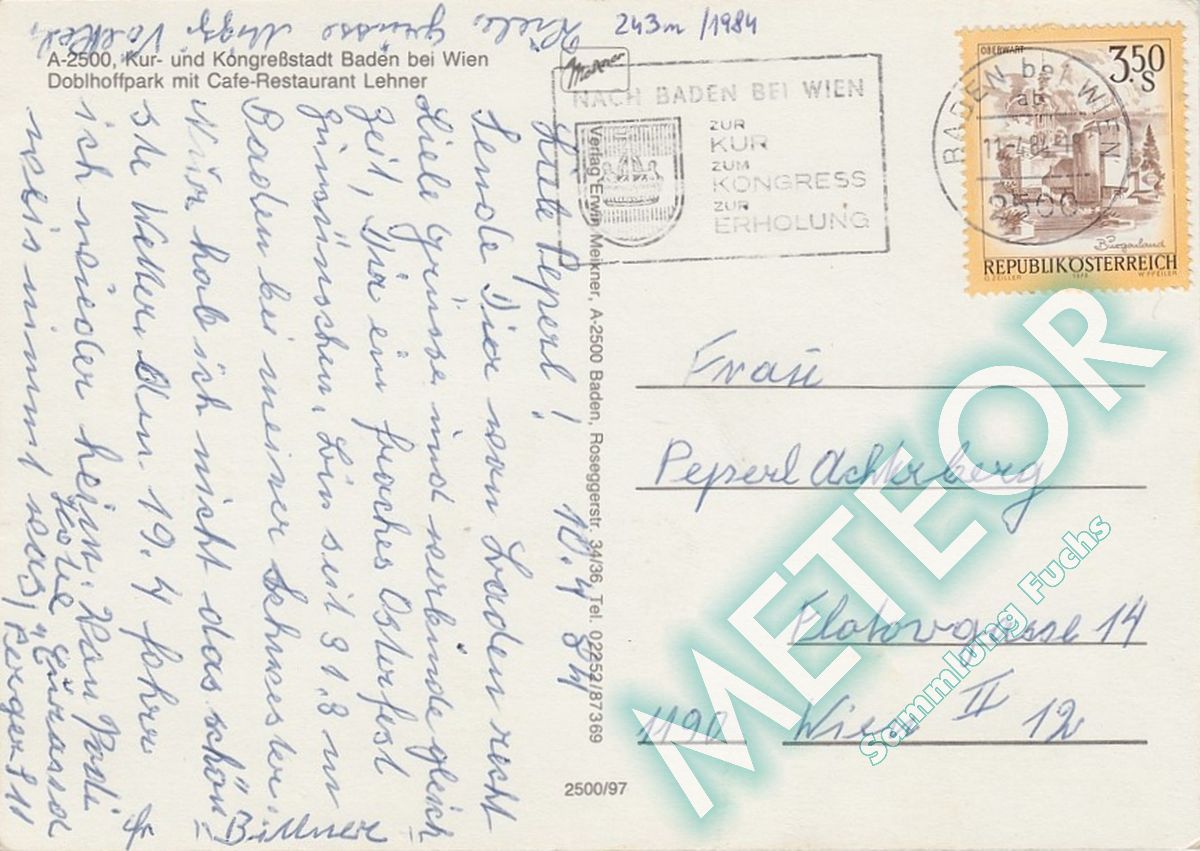 243m /1984
A-2500, Kur- und Kongreßstadt Baden bei Wien
Doblhoffpark mit Cafe-Restaurant Lehner
Meikner
NACH BADEN BEI WIEN
ZUR
KUR
ZUM
KONGRESS
ZUR
ERHOLUNG
BADEN bei WIEN
ab
11.-4.84
2500
OBERWART
3.50
S
Burgenland
REPUBLIK ÖSTERREICH
O. ZEILLER 1978 W. PFEILER
Verlag Erwin Meikner, A-2500 Baden, Roseggerstr. 34/36, Tel. 02252/87369
2500/97
10.4.84
Liebe Peperl!
Sende Dier von Baden recht
Liebe Grüsse und verbinde gleich
zeit, Dier ein frohes Osterfest
zu wünschen, bin seit 31.3 in
Baden bei meiner Schwester.
Nur hab ich nicht das schön
ste Wetter. Am 19.4 fahre
ich wieder heim. Von Poldi
weis nimmt was,
Viele Grüsse
Bittner
Frau
Peperl Achterberg
Flotowgasse 14
1190 Wien II 12
METEOR
Sammlung Fuchs